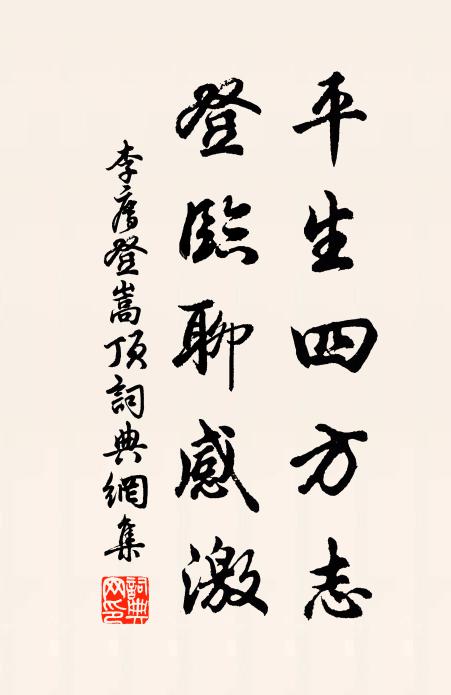 平生四方志
登臨聊感激
李廌登嵩頂詞典網集
詞典网印